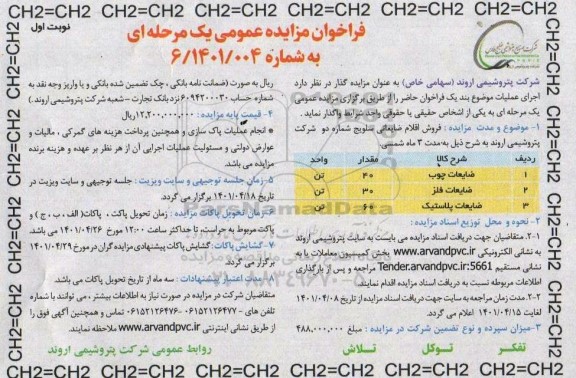 CH2=CH2 CH2=CH2 CH2=CH2 CH2=CH2 CH2=CH2 CH2=CH2
نوبت اول
فراخوان مزایده عمومی یک مرحله ای
به شماره ۶/۱۴۰۱/۰۰۴
شرکت پتروشیمی اروند (سهامی خاص) به عنوان مزایده گذار در نظر دارد
اجرای عملیات موضوع بند یک فراخوان حاضر را از طریق برگزاری مزایده عمومی
یک مرحله ای به یکی از اشخاص حقیقی یا حقوقی واجد شرایط واگذار نماید .
۱- موضوع و مدت مزایده : فروش اقلام ضایعاتی سلویج شماره دو شرکت
پتروشیمی اروند به شرح ذیل به مدت ۳ ماه شمسی
ردیف شرح کالا مقدار واحد
۱ ضایعات چوب ۴۰ تن
۲ ضایعات فلز ۳۰ تن
۳ ضایعات پلاستیک ۶۰ تن
۲- نحوه و محل توزیع اسناد مزایده :
۲-۱. متقاضیان جهت دریافت اسناد مزایده می بایست به سایت پتروشیمی اروند
به نشانی الکترونیکی www.arvandpvc.ir بخش کمیسیون معاملات یا به
نشانی مستقیم Tender.arvandpvc.ir:5661 مراجعه و پس از بارگذاری
اطلاعات مربوطه نسبت به دریافت اسناد مزایده اقدام نمایند.
۲-۲. مدت زمان مراجعه به سایت جهت دریافت اسناد مزایده از تاریخ ۱۴۰۱/۰۴/۰۸
لغایت ۱۴۰۱/۰۴/۱۵ اعلام می گردد.
۳-میزان سپرده و نوع تضمین شرکت در مزایده : مبلغ ۴۸۸,۰۰۰,۰۰۰
ریال به صورت (ضمانت نامه بانکی ، چک تضمین شده بانکی و یا واریز وجه نقد به
شماره حساب ۶۰۹۴۲۰۰۰۳۰ نزد بانک تجارت – شعبه شرکت پتروشیمی اروند .)
۴- قیمت پایه مزایده : ۱۲,۲۰۰,۰۰۰,۰۰۰ریال
انجام عملیات پاک سازی و همچنین پرداخت هزینه های گمرکی ، مالیات و
عوارض دولتی و مسئولیت عملیات اجرایی آن از هر نظر بر عهده و هزینه برنده
مزایده می باشد.
۵-زمان جلسه توجیهی و سایت ویزیت : جلسه توجیهی و سایت ویزیت در
تاریخ ۱۴۰۱/۰۴/۱۸ برگزار می گردد.
۶-زمان تحویل پاکات مزایده : زمان تحویل پاکت ، پاکات( الف ، ب ، ج ) و
پاکت مربوط به حراست تا حداکثر ساعت ۱۲:۰۰ مورخ ۱۴۰۱/۰۴/۲۶ می باشد.
۷-گشایش پاکات : گشایش پاکات پیشنهادی مزایده گران در مورخ ۱۴۰۱/۰۴/۲۹
برگزار می گردد.
۸-مدت اعتبار پیشنهادات : سه ماه از تاریخ تحویل پاکات می باشد.
متقاضیان شرکت در مزایده در صورت نیاز به اطلاعات بیشتر ، می توانند با شماره
تلفن های ۰۶۱۵۲۱۲۶۴۷۷ - ۰۶۱۵۲۱۲۶۰۷۶ تماس و همچنین آگهی فوق را
از طریق نشانی اینترنتی www.arvandpvc.ir ملاحظه نمایند.
تفکر توکل تلاش
روابط عمومی شرکت پتروشیمی اروند
CH2=CH2 CH2=CH2 CH2=CH2 CH2=CH2 CH2=CH2 CH2=CH2